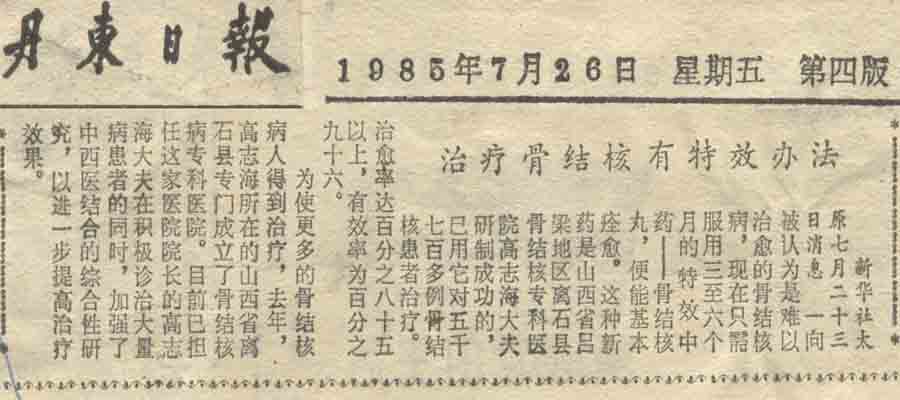 丹東日報
1985年7月26日 星期五 第四版
治疗骨结核有特效办法
新华社太
原七月二十三
日消息 一向
被认为是难以
治愈的骨结核
病，现在只需
服用三至六个
月的特效中
药——骨结核
丸，便能基本
痊愈。这种新
药是山西省吕
梁地区离石县
骨结核专科医
院高志海大夫
研制成功的，
已用它对五千
七百多例骨结
核患者治疗。
治愈率达百分之八十五
以上，有效率为百分之
九十六。
为使更多的骨结核
病人得到治疗，去年，
高志海所在的山西省离
石县专门成立了骨结核
病专科医院。目前已担
任这家医院院长的高志
海大夫在积极诊治大量
病患者的同时，加强了
中西医结合的综合性研
究，以进一步提高治疗
效果。